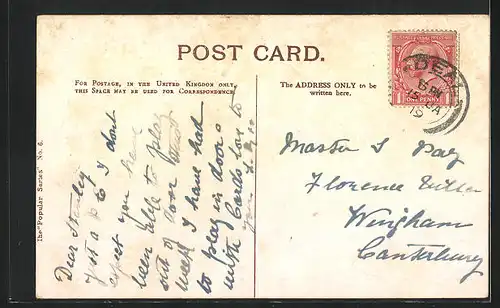 POST CARD.
FOR POSTAGE, IN THE UNITED KINGDOM ONLY,
THIS SPACE MAY BE USED FOR CORRESPONDENCE
The ADDRESS ONLY to be
written here.
The "Popular Series" No. 6.
Dear Stanley
Just a P C I dont
expect you have
been able to play
out of door
week I have had
to play in doors
with Cards love to
you
Master S Day
Florence Villa
Wingham
Canterbury
DEAL
8 PM
15
19
ONE PENNY